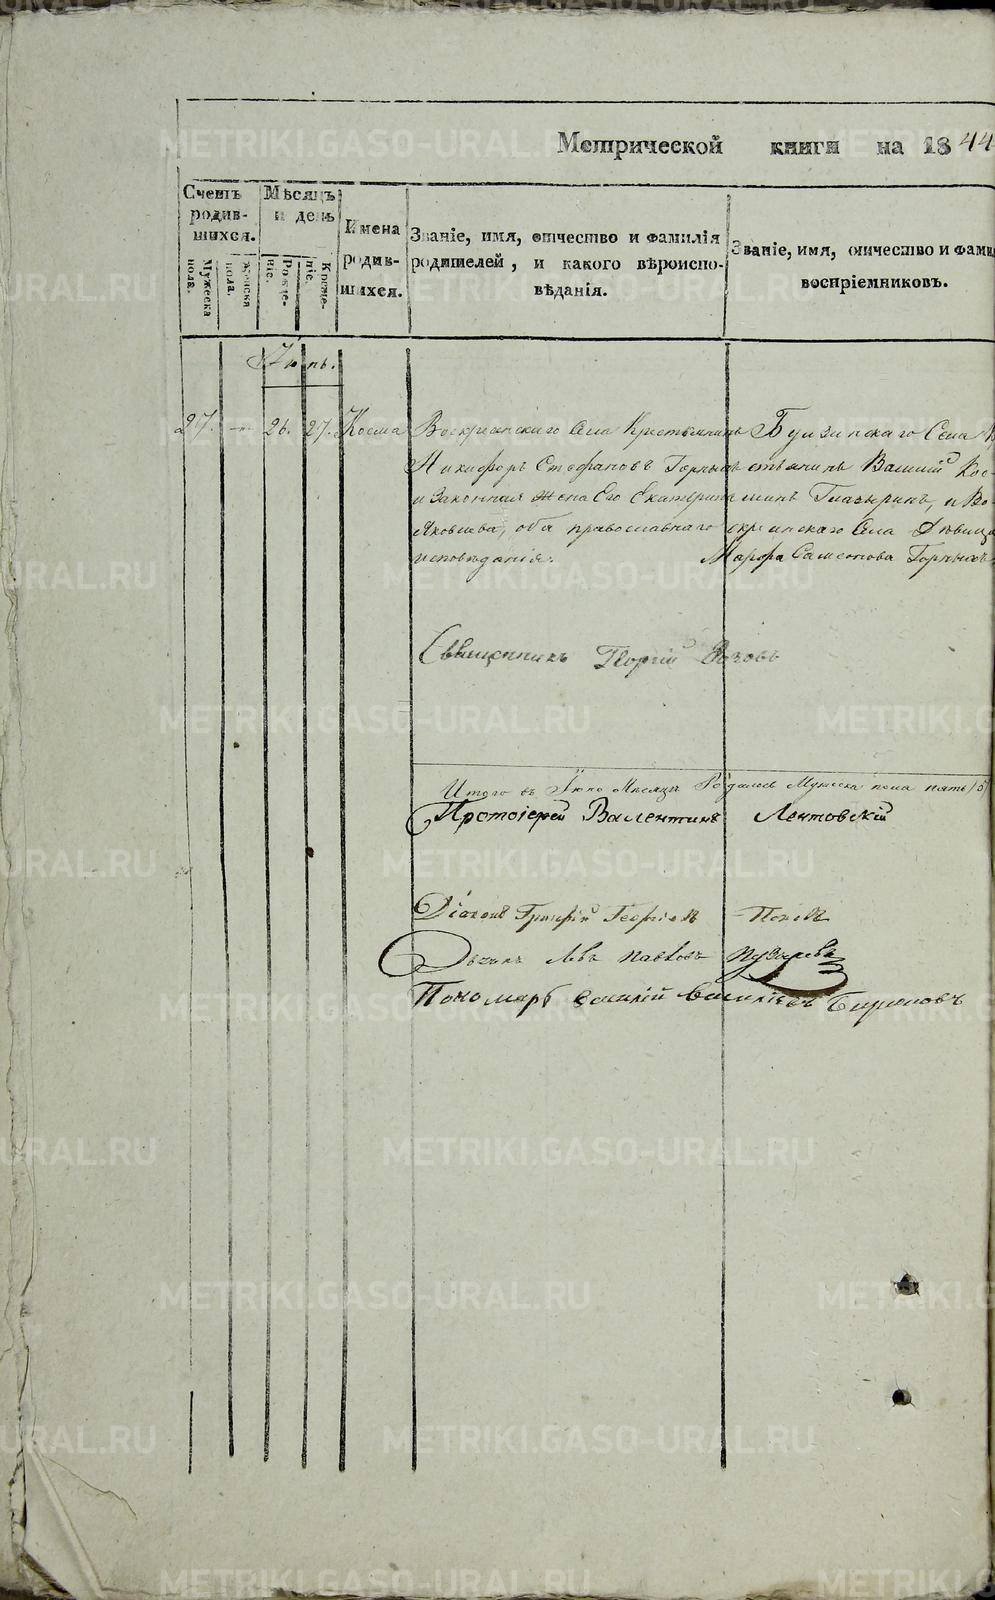 Метрической книги на 1844
Счетъ родив-шихся.
Мужеска пола.
Женска пола.
Мѣсяцъ и день
Рожде-ніе.
Креще-ніе.
Имена родив-шихся.
Званіе, имя, отчество и фамилія
родителей, и какого вѣроиспо-
вѣданія.
Званіе, имя, отчество и фами
воспріемниковъ.
Іюнь.
27. — 26. 27. Косма
Воскресенскаго Села Крестьянинъ
Никифоръ Стефановъ Горныхъ
и Законная Жена Его Екатерина
Яковлева, оба православнаго
исповѣданія.
Бутинскаго Села К
стьянинъ Василій Кос-
минъ Глазыринъ, и Во-
скресенскаго Села Дѣвица
Марфа Самсонова Горныхъ
Священникъ Георгій
Итого въ Іюнѣ Мѣсяцѣ Родилось Мужеска пола пять /5/
Протоіерей Валентинъ Лентовскій
Діаконъ Григорій Георгіевъ Поповъ
Дьячекъ Левъ Павловъ
Пономарь Василій Василіевъ Бирюковъ
METRIKI.GASO-URAL.RU